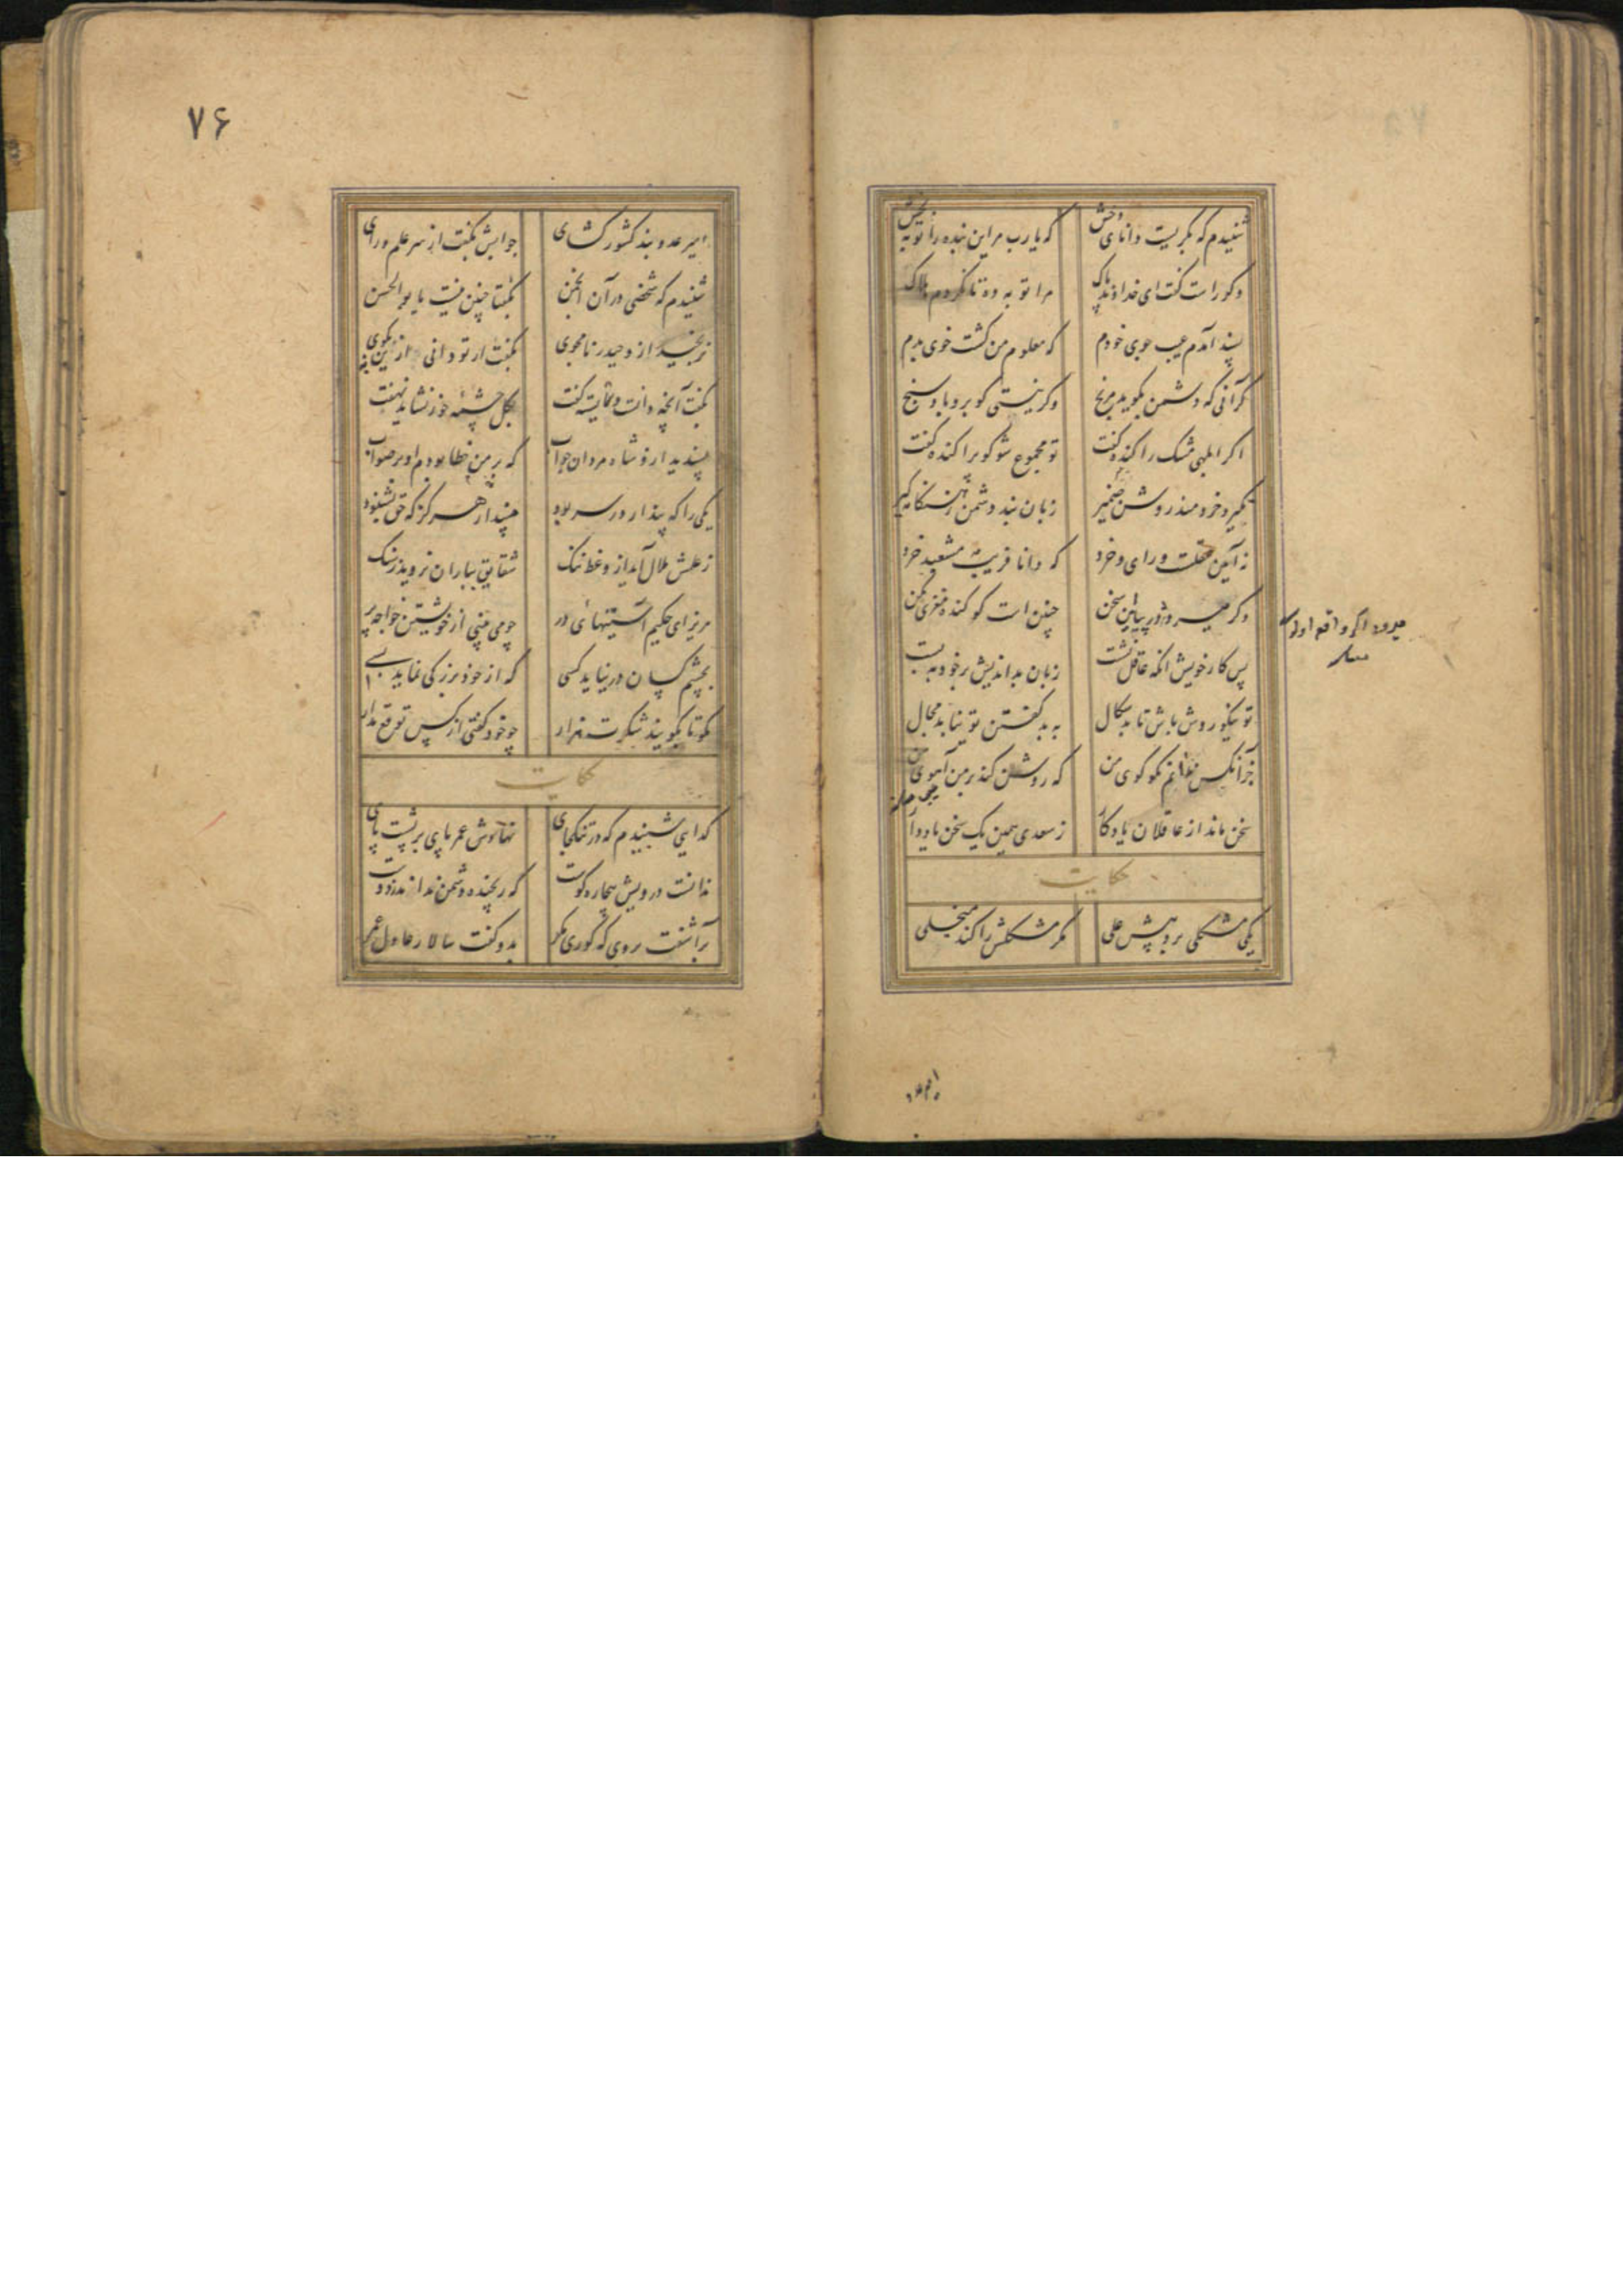 شنیدم که بگریست دانای وخش که یارب مر این بنده را توبه بخش
وگر راست گفت ای خداوند پاک مرا توبه ده تا نگردم هلاک
پسند آمدم عیب جوی خودم که معلوم من گشت خوی بدم
گر آنی که دشمن بگوید مرنج وگر نیستی گو برو باد سنج
اگر ابلهی مشک را گنده گفت تو مجموع شو کو پراکنده گفت
نگیرد خردمند روشن ضمیر زبان بند دشمن ز هنگامه گیر
نه آیین عقلست و رای و خرد که دانا فریب مشعبد خرد
وگر میرود در پیاز این سخن چنین است گو گنده مغزی مکن
میرود اگر واقع اولور
پس کار خویش آنکه عاقل نشست زبان بداندیش بر خود ببست
تو نیکو روش باش تا بدسگال به بد گفتن تو نیابد مجال
جز آنکس ندانم نکو گوی من که روشن کند بر من آهوی من
سخن ماند از عاقلان یادگار ز سعدی همین یک سخن یاد دار
حکایت
یکی مشکلی برد پیش علی مگر مشکلش را کند منجلی
۷۶
امیر عدو بند کشور گشای جوابش بگفت از سر علم و رای
شنیدم که شخصی در آن انجمن بگفتا چنین نیست یا بوالحسن
نرنجید ازو حیدر نامجوی بگفت ار تو دانی ازین به بگوی
بگفت آنچه دانست و شایسته گفت بگل چشمه خور نشاید نهفت
پسندید ازو شاه مردان جواب که بر من خطا بودم او بر صواب
یکی را که پندار در سر بود مپندار هرگز که حق بشنود
ز علمش ملال آید از وعظ ننگ شقایق بباران نروید ز سنگ
مریز ای حکیم آستینهای در چو می بینی از خویشتن خواجه پر
بچشم کسان در نیاید کسی که از خود بزرگی نماید بسی
مگو تا بگویند شکرت هزار چو خود گفتی از کس توقع مدار
حکایت
گدایی شنیدم که در تنگ جای نهادش عمر پای بر پشت پای
ندانست درویش بیچاره کوست که رنجیده دشمن نداند ز دوست
برآشفت بروی که کوری مگر بدو گفت سالار عادل عمر